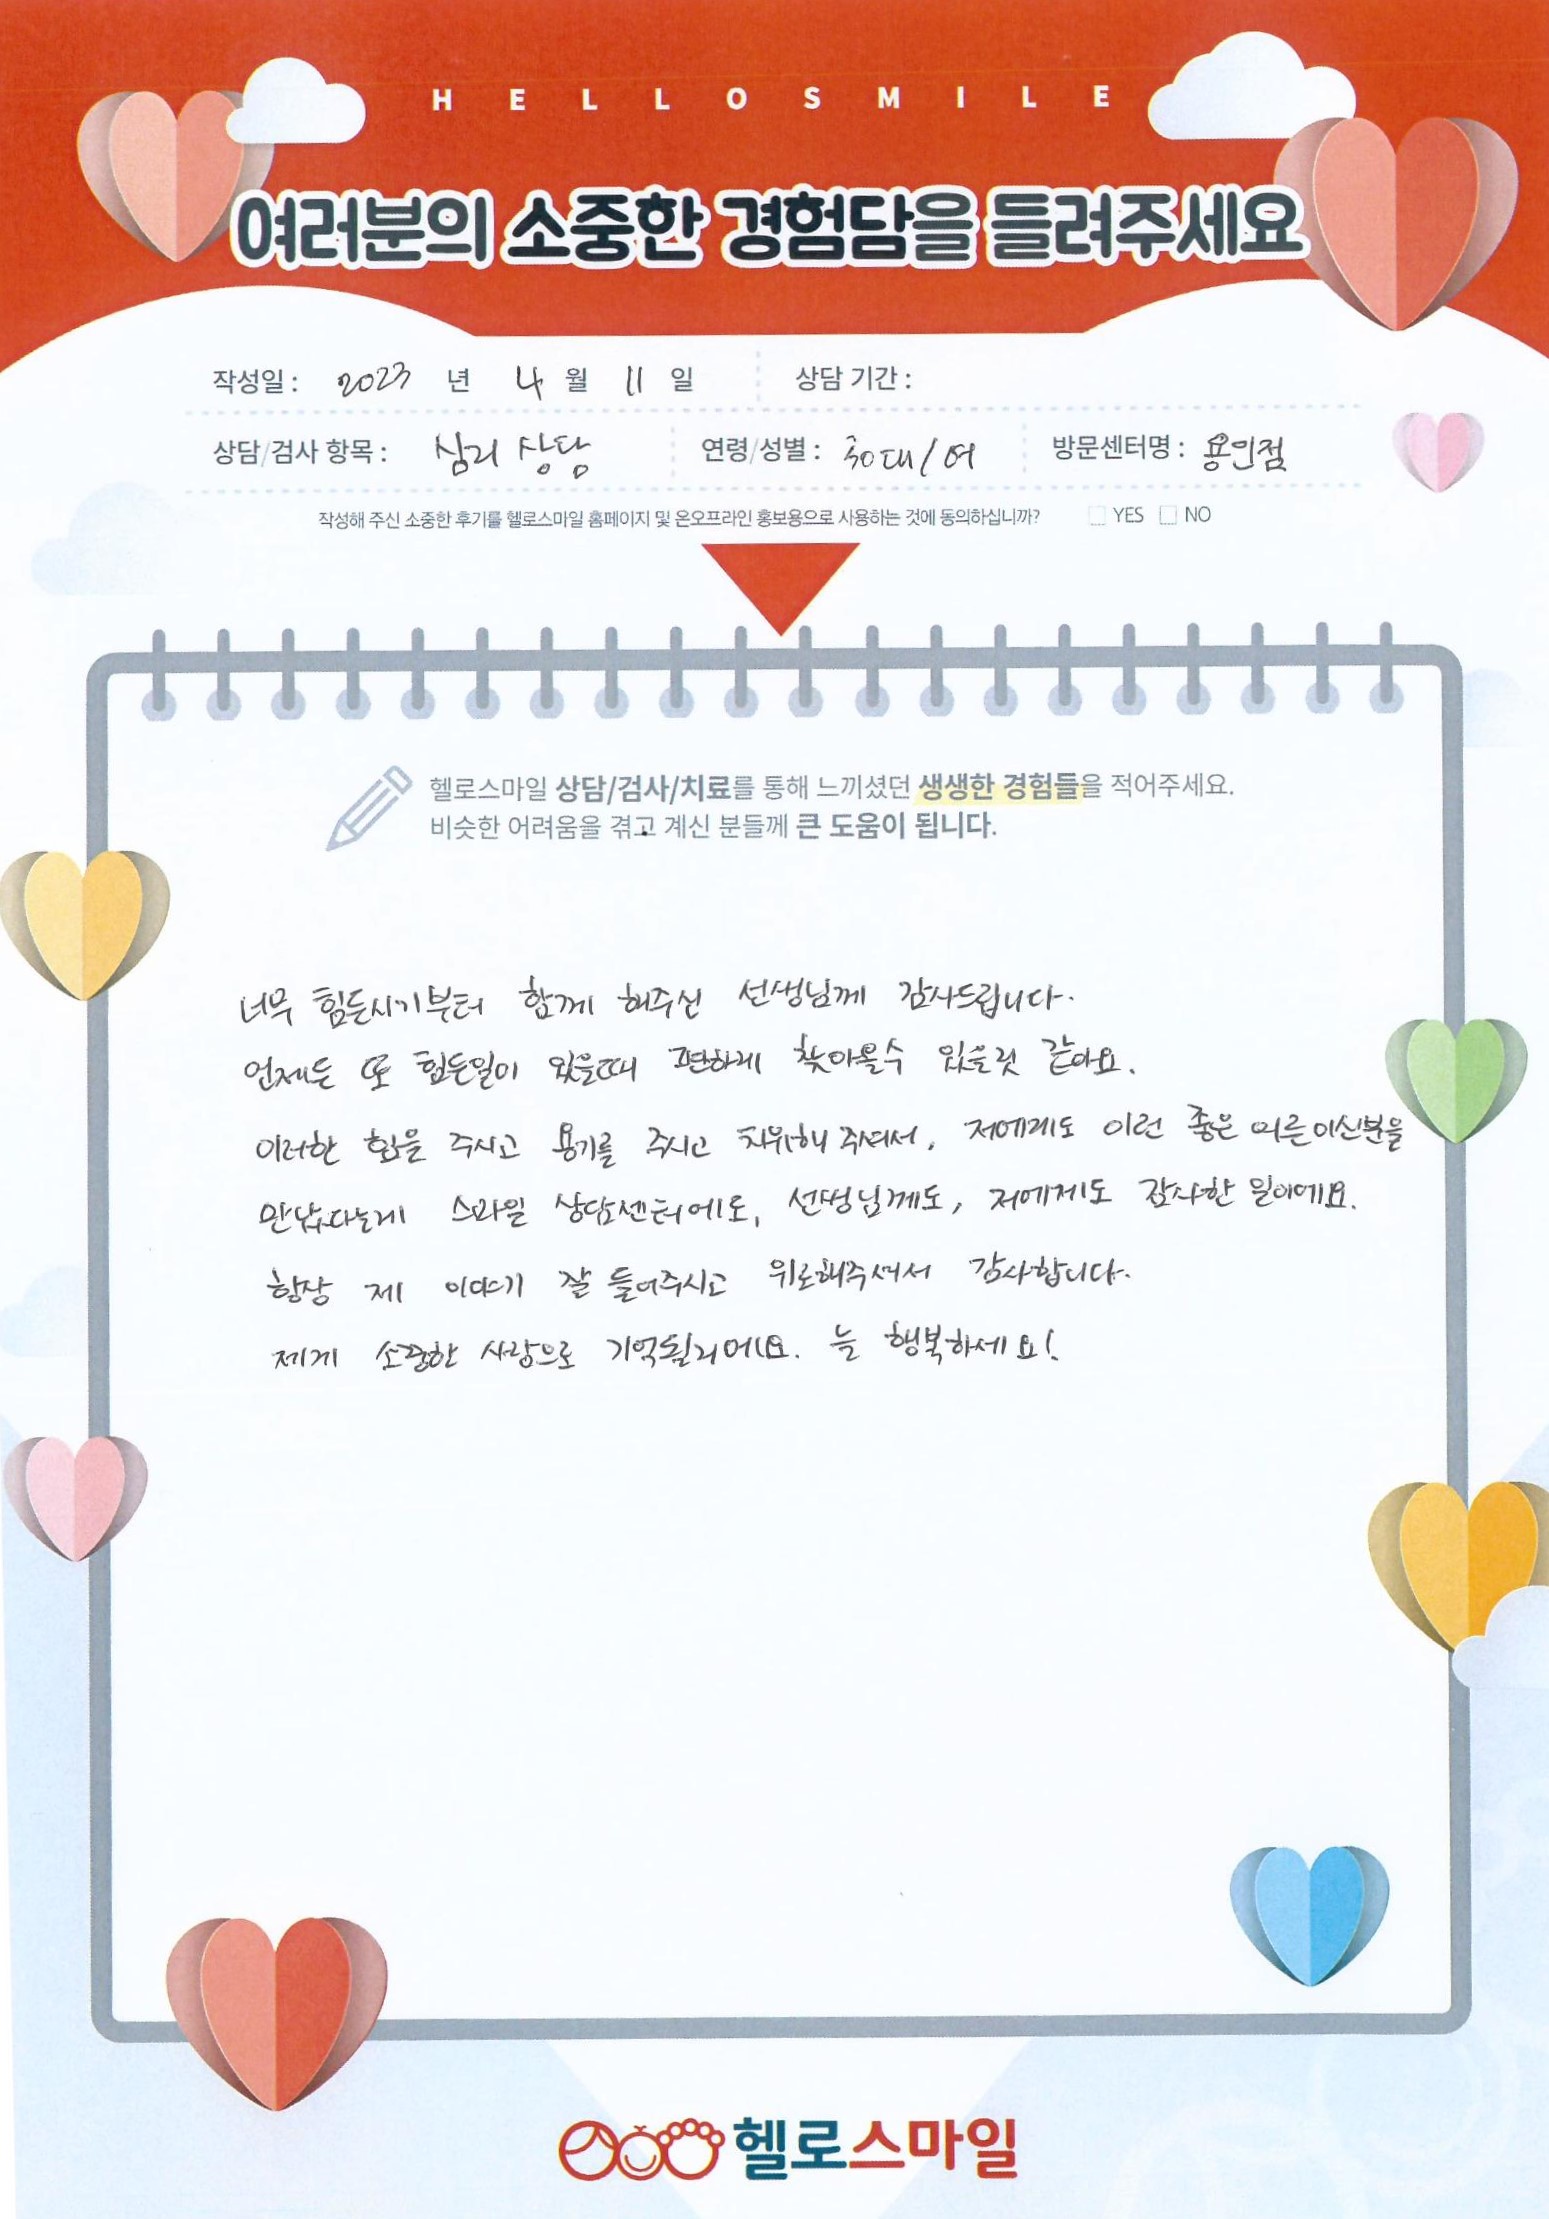 HELLOSMILE
여러분의 소중한 경험담을 들려주세요
작성일 : 2023 년 4 월 11 일 상담 기간 :
상담/검사 항목 : 심리 상담 연령/성별 : 30대/여 방문센터명 : 용인점
작성해 주신 소중한 후기를 헬로스마일 홈페이지 및 온오프라인 홍보용으로 사용하는 것에 동의하십니까? YES NO
헬로스마일 상담/검사/치료를 통해 느끼셨던 생생한 경험들을 적어주세요.
비슷한 어려움을 겪고 계신 분들께 큰 도움이 됩니다.
너무 힘든시기부터 함께 해주신 선생님께 감사드립니다.
언제든 또 힘든일이 있을때 편하게 찾아올수 있을것 같아요.
이러한 힘을 주시고 용기를 주시고 지위해 주셔서, 저에게도 이런 좋은 어른이신분을
만났다는게 스마일 상담센터에도, 선생님께도, 저에게도 감사한 일이에요.
항상 제 이야기 잘 들어주시고 위로해주셔서 감사합니다.
제게 소중한 사람으로 기억될거에요. 늘 행복하세요!
헬로스마일